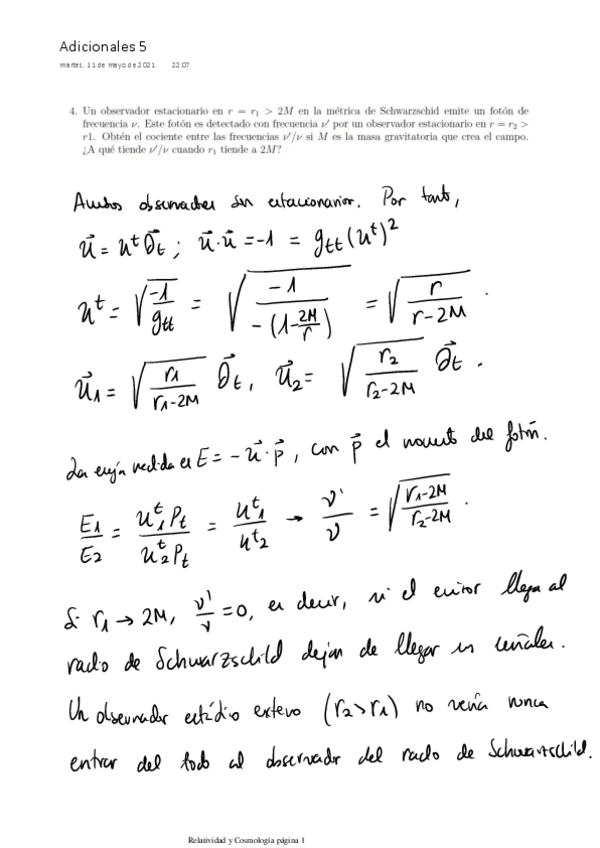 Adicionales 5
martes, 11 de mayo de 2021 22:07
4. Un observador estacionario en r = r₁ > 2M en la métrica de Schwarzschid emite un fotón de
frecuencia ν. Este fotón es detectado con frecuencia ν′ por un observador estacionario en r = r₂ >
r1. Obtén el cociente entre las frecuencias ν′/ν si M es la masa gravitatoria que crea el campo.
¿A qué tiende ν′/ν cuando r₁ tiende a 2M?
Ambos observadores son estacionarios. Por tanto,
u⃗ = uᵗ ∂⃗ₜ ; u⃗·u⃗ = -1 = gₜₜ (uᵗ)²
uᵗ = √(-1/gₜₜ) = √(-1/(-(1-2M/r))) = √(r/(r-2M)) .
u⃗₁ = √(r₁/(r₁-2M)) ∂⃗ₜ , u⃗₂ = √(r₂/(r₂-2M)) ∂⃗ₜ .
La energía medida es E = -u⃗·p⃗ , con p⃗ el momento del fotón.
E₁/E₂ = u₁ᵗ pₜ / u₂ᵗ pₜ = uᵗ₁/uᵗ₂ → ν'/ν = √((r₁-2M)/(r₂-2M)) .
Si r₁ → 2M, ν'/ν = 0, es decir, si el emisor llega al
radio de Schwarzschild dejan de llegar sus señales.
Un observador estático externo (r₂>r₁) no vería nunca
entrar del todo al observador del radio de Schwarzschild.
Relatividad y Cosmología página 1